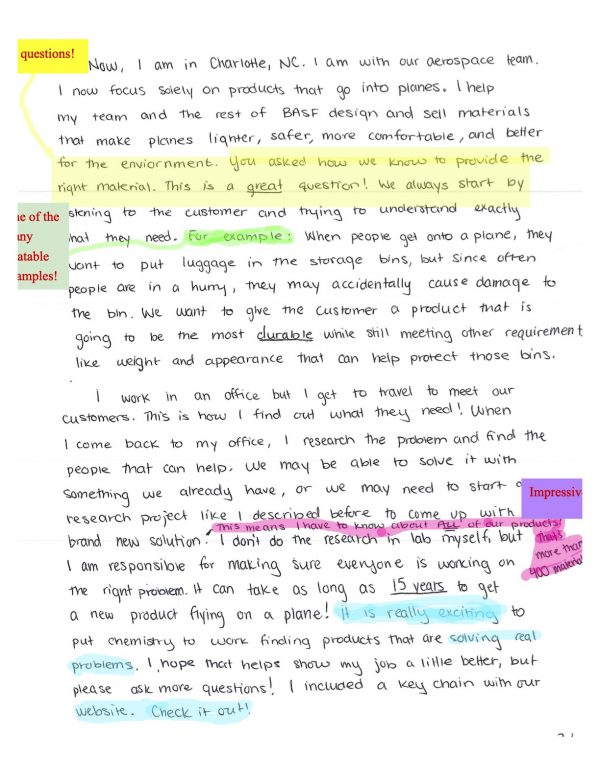 questions!
Now, I am in Charlotte, NC. I am with our aerospace team.
I now focus solely on products that go into planes. I help
my team and the rest of BASF design and sell materials
that make planes lighter, safer, more comfortable, and better
for the enviornment. You asked how we know to provide the
right material. This is a great question! We always start by
stening to the customer and trying to understand exactly
ne of the
any
atable
amples!
hat they need. For example: When people get onto a plane, they
want to put luggage in the storage bins, but since often
people are in a hurry, they may accidentally cause damage to
the bin. We want to give the customer a product that is
going to be the most durable while still meeting other requirement
like weight and appearance that can help protect those bins.
I work in an office but I get to travel to meet our
customers. This is how I find out what they need! When
I come back to my office, I research the problem and find the
people that can help. We may be able to solve it with
something we already have, or we may need to start
Impressiv
research project like I described before to come up with
This means I have to know about ALL of our products!
That's
more than
400 material
brand new solution. I don't do the research in lab myself, but
I am responsible for making sure everyone is working on
the right problem. It can take as long as 15 years to get
a new product flying on a plane! It is really exciting to
put chemistry to work finding products that are solving real
problems. I hope that helps show my job a little better, but
please ask more questions! I included a key chain with our
website. Check it out!